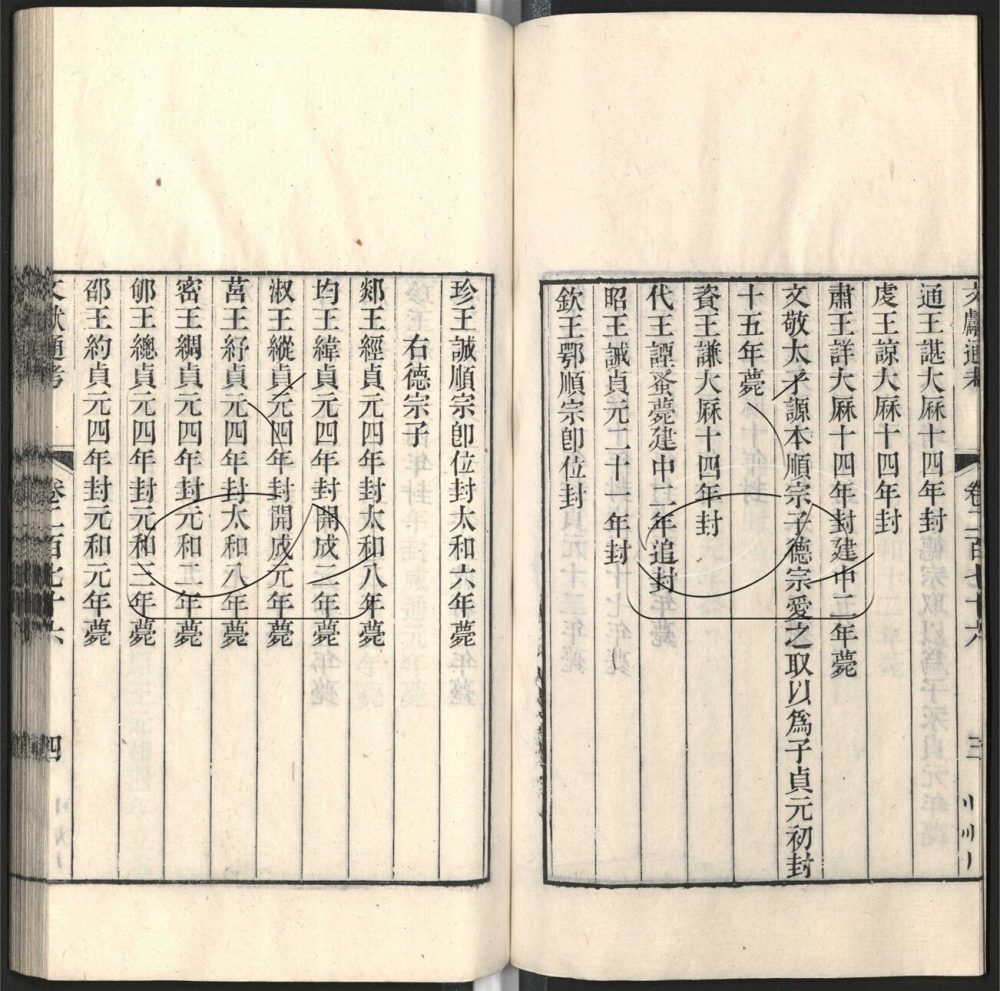 文獻通考 卷二百七十六 三
通王諶大厤十四年封
虔王諒大厤十四年封
肅王詳大厤十四年封建中三年薨
文敬太子謜本順宗子德宗愛之取以爲子貞元初封
十五年薨
資王謙大厤十四年封
代王諲蚤薨建中二年追封
昭王誡貞元二十一年封
欽王鄂順宗卽位封
珍王諴順宗卽位封太和六年薨
右德宗子
郯王經貞元四年封太和八年薨
均王緯貞元四年封開成二年薨
溆王縱貞元四年封開成元年薨
莒王紓貞元四年封太和八年薨
密王綢貞元四年封元和二年薨
郇王總貞元四年封元和三年薨
邵王約貞元四年封元和元年薨
文獻通考 卷二百七十六 四